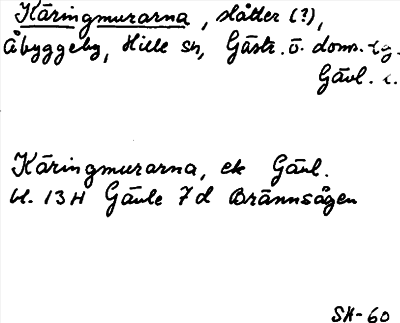 Käringmurarna, slåtter (?),
Åbyggeby, Hille sn, Gästr. ö. doms. tg.
Gävl. l.
Käringmurarna, ek Gävl.
bl. 13H Gävle 7d Brännsågen
SH-60